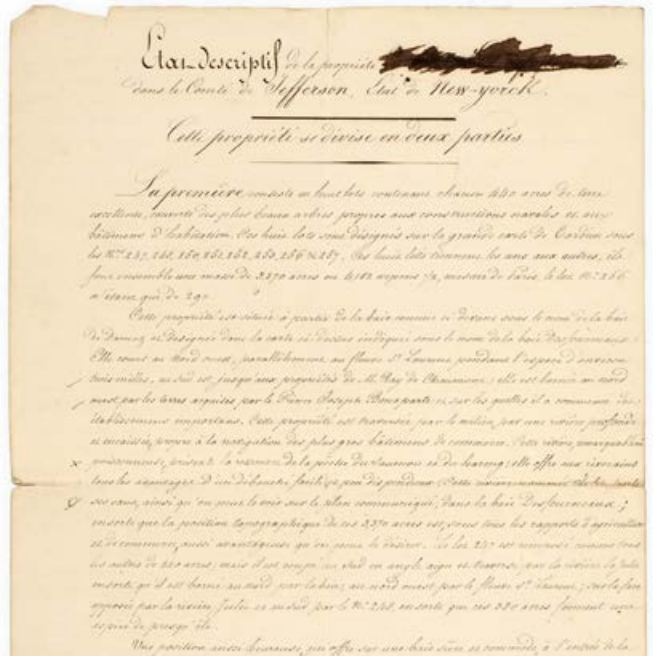 Etat-descriptif de la propriété
dans le Comté de Jefferson, Etat de New-yorck.
Cette propriété se divise en deux parties
La première consiste en huit lots contenant chacun 440 acres de terre
excellente, couverte des plus beaux arbres propres aux constructions navales et aux
bâtimens d'habitation. Ces huit lots sont désignés sur la grande carte de sous
les Nos 247, 248, 250, 256 & 257. Ces huit lots tiennent les uns aux autres, ils
font ensemble une masse de 3,370 acres ou arpens 1/2, mesure de Paris, le lot No 256
n'étant que de 290
Cette propriété est située à partir de la baie connue ci devant sous le nom de la baie
de et désignée dans la carte ci dessus indiquée sous le nom de la baie Desfourneaux.
Elle court au Nord ouest, parallèlement au fleuve St Laurent pendant l'espace d'environ
trois milles, au sud est, jusqu'aux propriétés de M. Ray de Chaumont; elle est bornée au nord
ouest par les terres acquises par le Prince Joseph Bonaparte et sur lesquelles il a commencé des
établissemens importans. Cette propriété est traversée par le milieu par une rivière profonde
et encaissée, propre à la navigation des plus gros bâtimens de commerce. Cette rivière,
poissonneuse, présente la de la pêche du saumon et du hareng; elle offre aux riverains
tous les avantages d'un débouché facile et peu dispendieux. Cette rivière
ses eaux, ainsi qu'on peut le voir sur le plan communiqué, dans la baie Desfourneaux;
ensorte que la position topographique de ces 3,370 acres est, sous tous les rapports d'agriculture
et de commerce, aussi avantageuse qu'on peut le désirer. Le lot 247 est comme tous
les autres de 440 acres; mais il est coupé au sud en angle aigu et traversé par la rivière
ensorte qu'il est borné au nord par la baie, au nord ouest par le fleuve St Laurent; sur la face
opposée par la rivière et au sud par le No 248, ensorte que ces acres forment une
espèce de presqu'île.
Une position aussi heureuse, qui offre sur une baie sûre et commode, à l'entrée de la